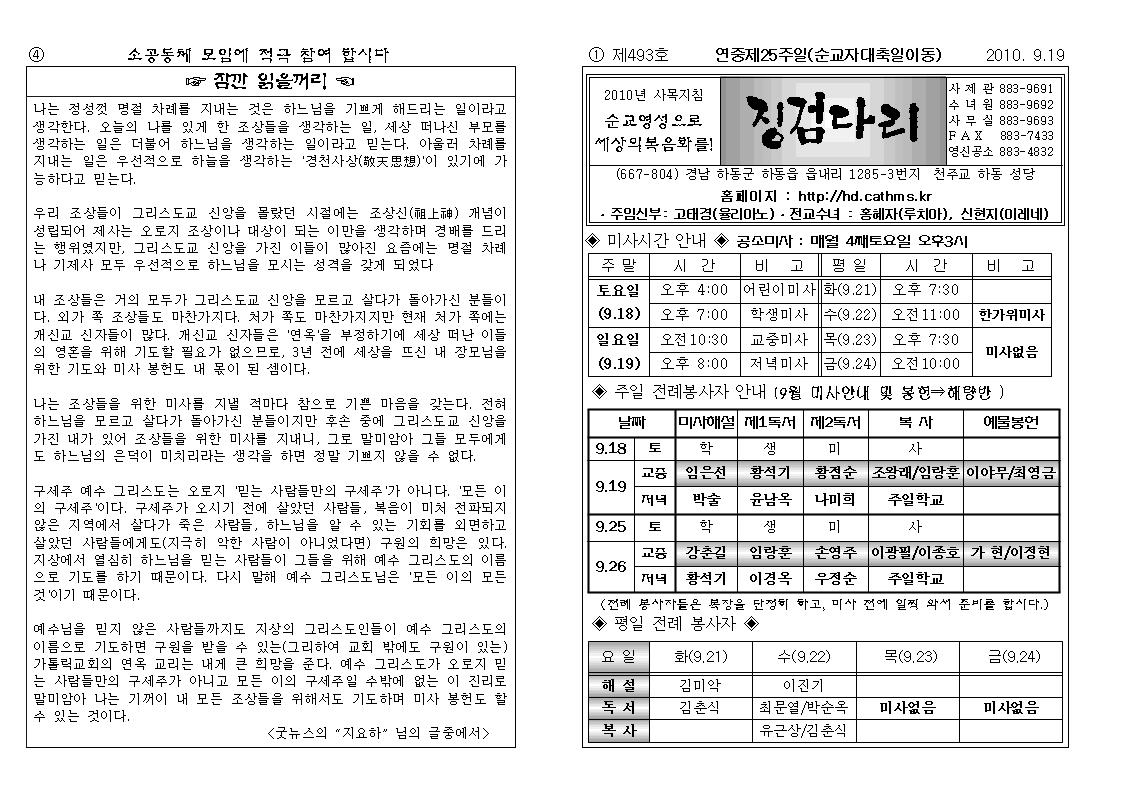 ④ 소공동체 모임에 적극 참여 합시다
☞ 잠깐 읽을꺼리 ☜
나는 정성껏 명절 차례를 지내는 것은 하느님을 기쁘게 해드리는 일이라고
생각한다. 오늘의 나를 있게 한 조상들을 생각하는 일, 세상 떠나신 부모를
생각하는 일은 더불어 하느님을 생각하는 일이라고 믿는다. 아울러 차례를
지내는 일은 우선적으로 하늘을 생각하는 '경천사상(敬天思想)'이 있기에 가
능하다고 믿는다.
우리 조상들이 그리스도교 신앙을 몰랐던 시절에는 조상신(祖上神) 개념이
성립되어 제사는 오로지 조상이나 대상이 되는 이만을 생각하며 경배를 드리
는 행위였지만, 그리스도교 신앙을 가진 이들이 많아진 요즘에는 명절 차례
나 기제사 모두 우선적으로 하느님을 모시는 성격을 갖게 되었다
내 조상들은 거의 모두가 그리스도교 신앙을 모르고 살다가 돌아가신 분들이
다. 외가 쪽 조상들도 마찬가지다. 처가 쪽도 마찬가지지만 현재 처가 쪽에는
개신교 신자들이 많다. 개신교 신자들은 '연옥'을 부정하기에 세상 떠난 이들
의 영혼을 위해 기도할 필요가 없으므로, 3년 전에 세상을 뜨신 내 장모님을
위한 기도와 미사 봉헌도 내 몫이 된 셈이다.
나는 조상들을 위한 미사를 지낼 적마다 참으로 기쁜 마음을 갖는다. 전혀
하느님을 모르고 살다가 돌아가신 분들이지만 후손 중에 그리스도교 신앙을
가진 내가 있어 조상들을 위한 미사를 지내니, 그로 말미암아 그들 모두에게
도 하느님의 은덕이 미치리라는 생각을 하면 정말 기쁘지 않을 수 없다.
구세주 예수 그리스도는 오로지 '믿는 사람들만의 구세주'가 아니다. '모든 이
의 구세주'이다. 구세주가 오시기 전에 살았던 사람들, 복음이 미처 전파되지
않은 지역에서 살다가 죽은 사람들, 하느님을 알 수 있는 기회를 외면하고
살았던 사람들에게도(지극히 악한 사람이 아니었다면) 구원의 희망은 있다.
지상에서 열심히 하느님을 믿는 사람들이 그들을 위해 예수 그리스도의 이름
으로 기도를 하기 때문이다. 다시 말해 예수 그리스도님은 '모든 이의 모든
것'이기 때문이다.
예수님을 믿지 않은 사람들까지도 지상의 그리스도인들이 예수 그리스도의
이름으로 기도하면 구원을 받을 수 있는(그리하여 교회 밖에도 구원이 있는)
가톨릭교회의 연옥 교리는 내게 큰 희망을 준다. 예수 그리스도가 오로지 믿
는 사람들만의 구세주가 아니고 모든 이의 구세주일 수밖에 없는 이 진리로
말미암아 나는 기꺼이 내 모든 조상들을 위해서도 기도하며 미사 봉헌도 할
수 있는 것이다.
<굿뉴스의 "지요하" 님의 글중에서>
① 제493호 연중제25주일(순교자대축일이동) 2010. 9.19
2010년 사목지침
순교영성으로
세상의복음화를!
징검다리
사 제 관 883-9691
수 녀 원 883-9692
사 무 실 883-9693
F A X 883-7433
영신공소 883-4832
(667-804) 경남 하동군 하동읍 읍내리 1285-3번지 천주교 하동 성당
홈페이지 : http://hd.cathms.kr
· 주임신부: 고태경(율리아노) · 전교수녀 : 홍혜자(루치아), 신현지(이레네)
◈ 미사시간 안내 ◈ 공소미사 : 매월 4째토요일 오후3시
주 말 시 간 비 고 평 일 시 간 비 고
토요일 오후 4:00 어린이미사 화(9.21) 오후 7:30
(9.18) 오후 7:00 학생미사 수(9.22) 오전11:00 한가위미사
일요일 오전10:30 교중미사 목(9.23) 오후 7:30 미사없음
(9.19) 오후 8:00 저녁미사 금(9.24) 오전10:00
◈ 주일 전례봉사자 안내 (9월 미사안내 및 봉헌⇒해량반 )
날짜 미사해설 제1독서 제2독서 복 사 예물봉헌
9.18 토 학 생 미 사
9.19 교중 임은선 황석기 황점순 조왕래/임랑훈 이야무/최영금
저녁 박술 윤남옥 나미희 주일학교
9.25 토 학 생 미 사
9.26 교중 강춘길 임랑훈 손영주 이광필/이종호 가 현/이정현
저녁 황석기 이경옥 우정순 주일학교
(전례 봉사자들은 복장을 단정히 하고, 미사 전에 일찍 와서 준비를 합시다.)
◈ 평일 전례 봉사자 ◈
요 일 화(9.21) 수(9.22) 목(9.23) 금(9.24)
해 설 김미악 이진기
독 서 김춘식 최문열/박순옥 미사없음 미사없음
복 사 유근상/김춘식